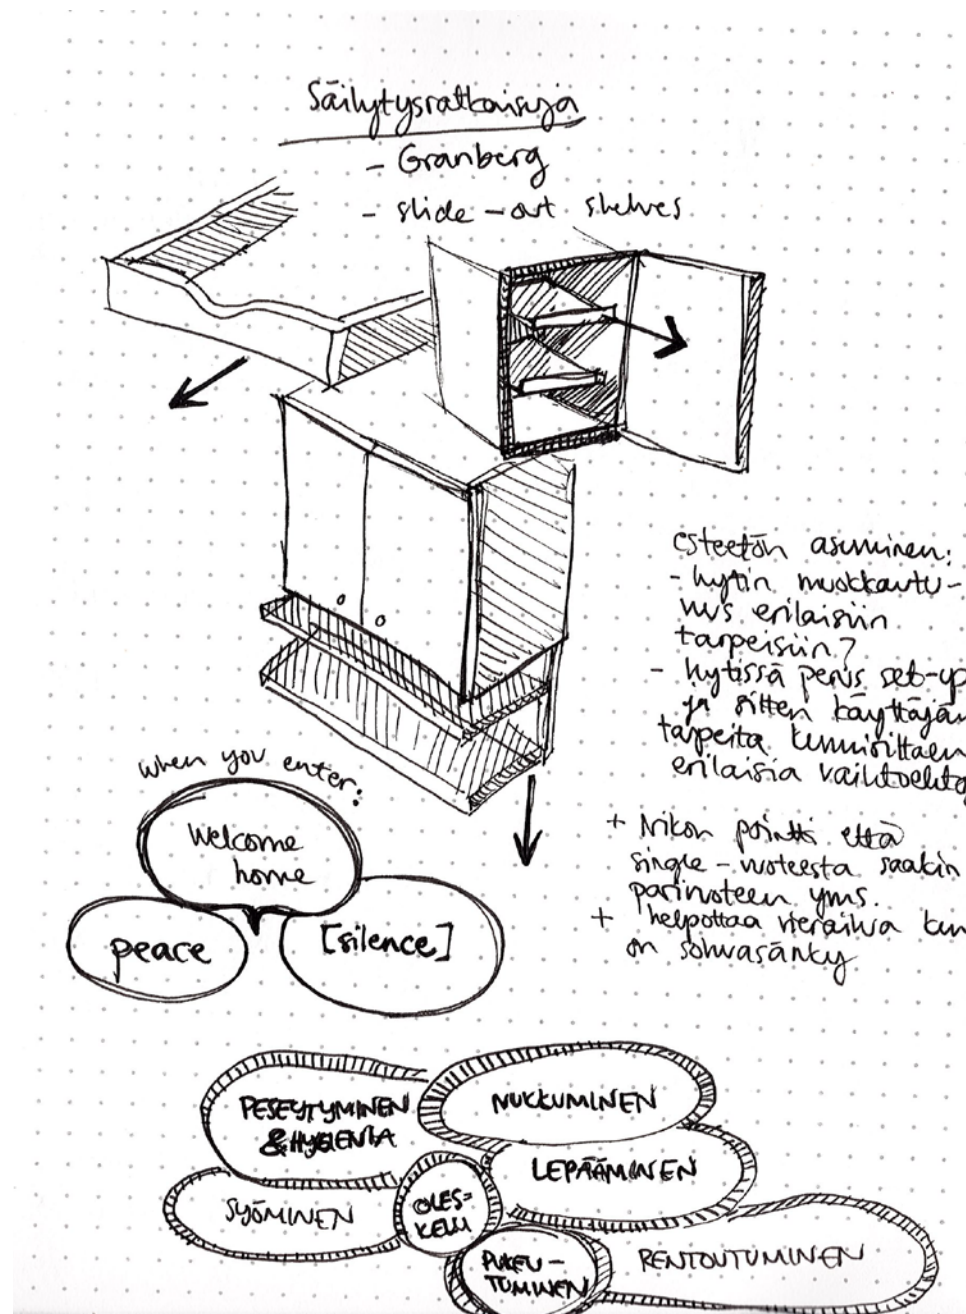 Säilytysratkaisuja
- Granberg
- slide-out shelves
esteetön asuminen:
- hytin muokkautu-
vuus erilaisiin
tarpeisiin?
- hytissä perus set-up
ja sitten käyttäjän
tarpeita kunnioittaen
erilaisia vaihtoehto
+ Nikon pointti että
single-vuoteesta saakin
parivuoteen yms.
+ helpottaa vierailua kun
on sohvasänky
when you enter:
Welcome
home
peace
[silence]
PESEYTYMINEN
& HYGIENIA
NUKKUMINEN
LEPÄÄMINEN
SYÖMINEN
OLES=
KELU
PUKEU-
TUMINEN
RENTOUTUMINEN